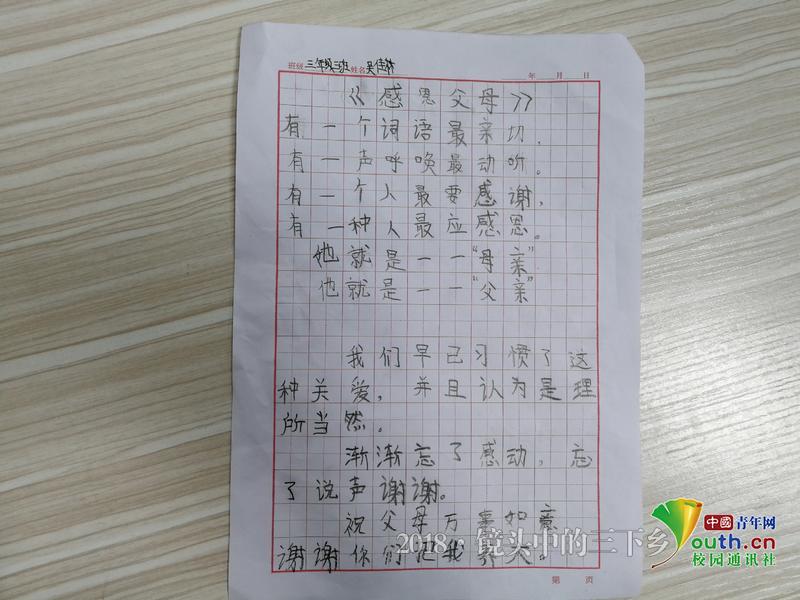 班级 三年级三班 姓名 吴佳林 年 月 日
《感恩父母》
有一个词语最亲切,
有一声呼唤最动听。
有一个人最要感谢,
有一种人最应感恩。
她就是一一“母亲”
他就是一一“父亲”
我们早已习惯了这
种关爱,并且认为是理
所当然。
渐渐忘了感动,忘
了说声谢谢。
祝父母万事如意
谢谢你们把我养大。
第 页
2018,镜头中的三下乡
中國青年网
youth.cn
校园通讯社